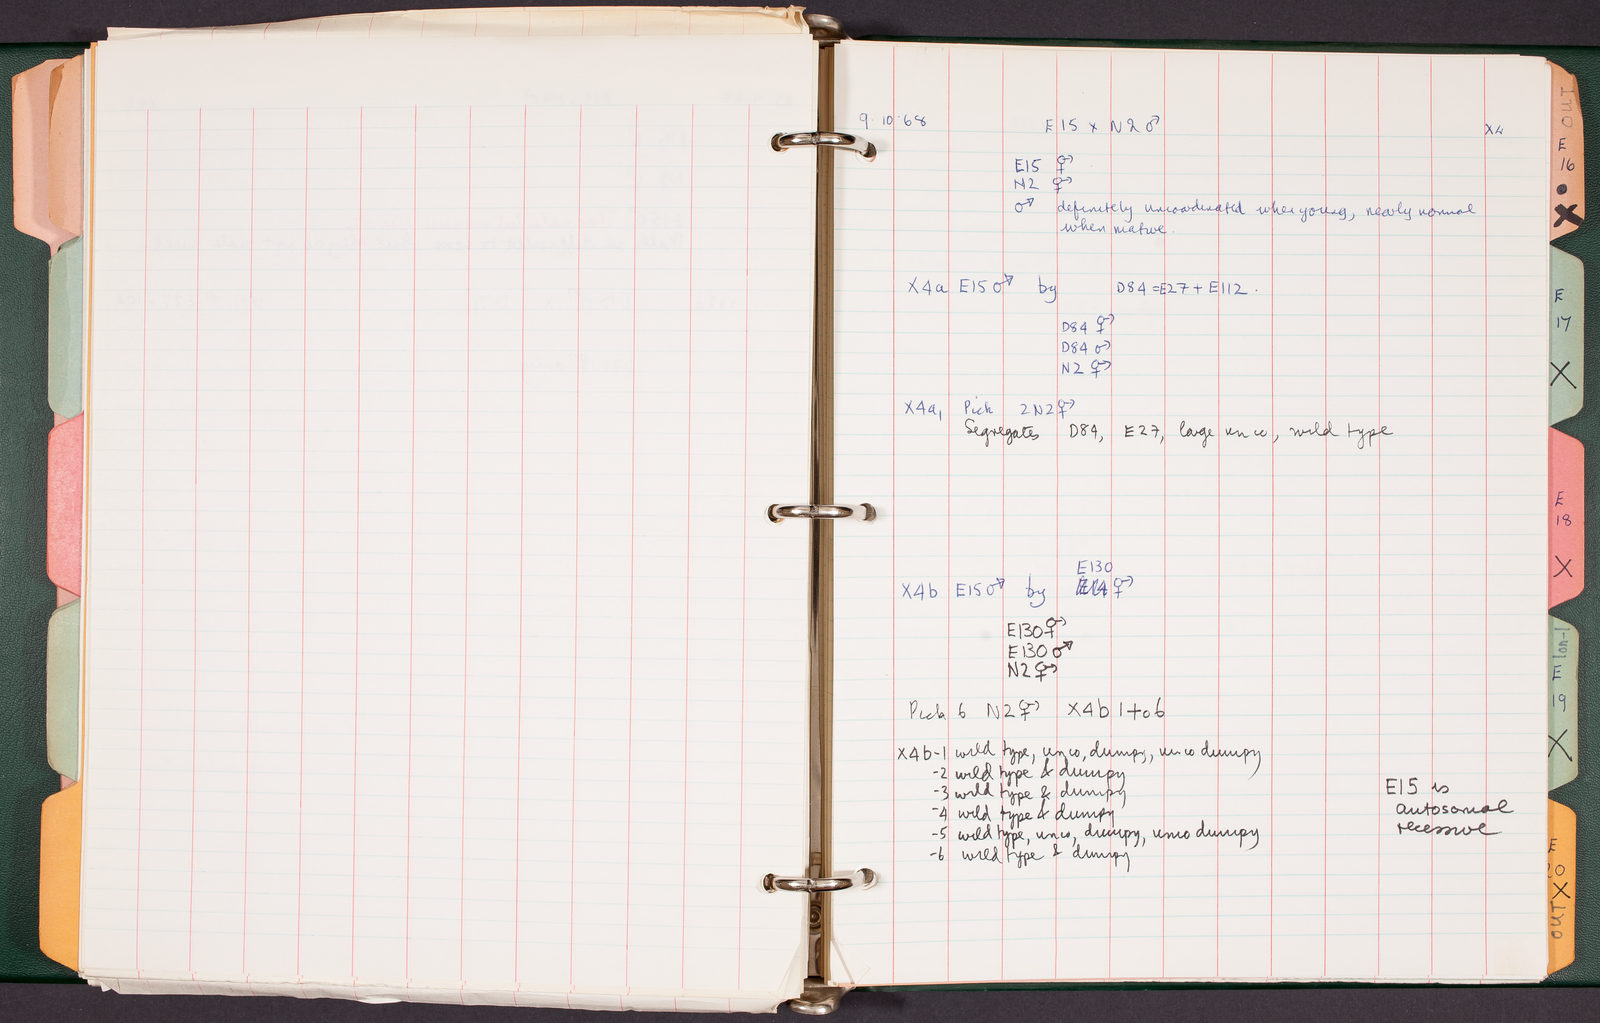 9.10.68 E15 x N2 ♂ X4
E15 ⚥
N2 ⚥
♂ definitely uncoordinated when young, nearly normal
when mature.
X4a E15 ♂ by D84 = E27 + E112.
D84 ⚥
D84 ♂
N2 ⚥
X4a1 Pick 2 N2 ⚥
Segregates D84, E27, large unco, wild type
E130
X4b E15 ♂ by ⚥
E130 ⚥
E130 ♂
N2 ⚥
Pick 6 N2 ⚥ X4b 1 to 6
X4b-1 wild type, unco, dumpy, unco dumpy
-2 wild type & dumpy
-3 wild type & dumpy
-4 wild type & dumpy
-5 wild type, unco, dumpy, unco dumpy
-6 wild type & dumpy
E15 is
autosomal
recessive
E
16
X
E
17
X
E
18
X
lon-1
E
19
X
E
20
X
OUT